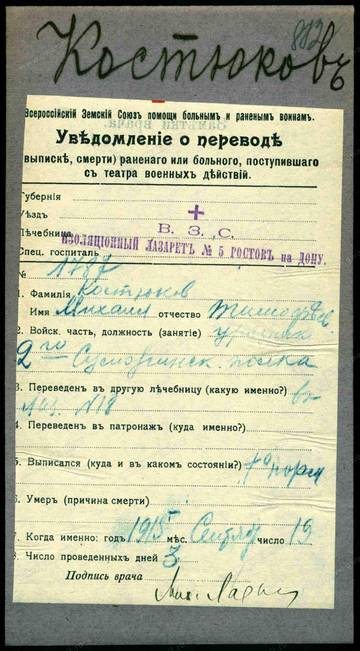 Костюковъ
Всероссійскій Земскій Союзъ помощи больнымъ и раненымъ воинамъ.
Увѣдомленіе о переводѣ
выпискѣ, смерти) раненаго или больного, поступившаго
съ театра военныхъ дѣйствій.
Губернія
Уѣздъ
В. З. С.
Лѣчебница
ИЗОЛЯЦІОННЫЙ ЛАЗАРЕТЪ № 5 РОСТОВЪ на ДОНУ.
Спец. госпиталь
№ 1787
1. Фамилія Костюков
Имя Михаил отчество
2. Войск. часть, должность (занятіе)
2го полка
3. Переведенъ въ другую лѣчебницу (какую именно?) въ
N18
4. Переведенъ въ патронажъ (куда именно?)
5. Выписался (куда и въ какомъ состояніи?)
6. Умеръ (причина смерти)
7. Когда именно: годъ 1915 мѣс. число 19
8. Число проведенныхъ дней 3
Подпись врача